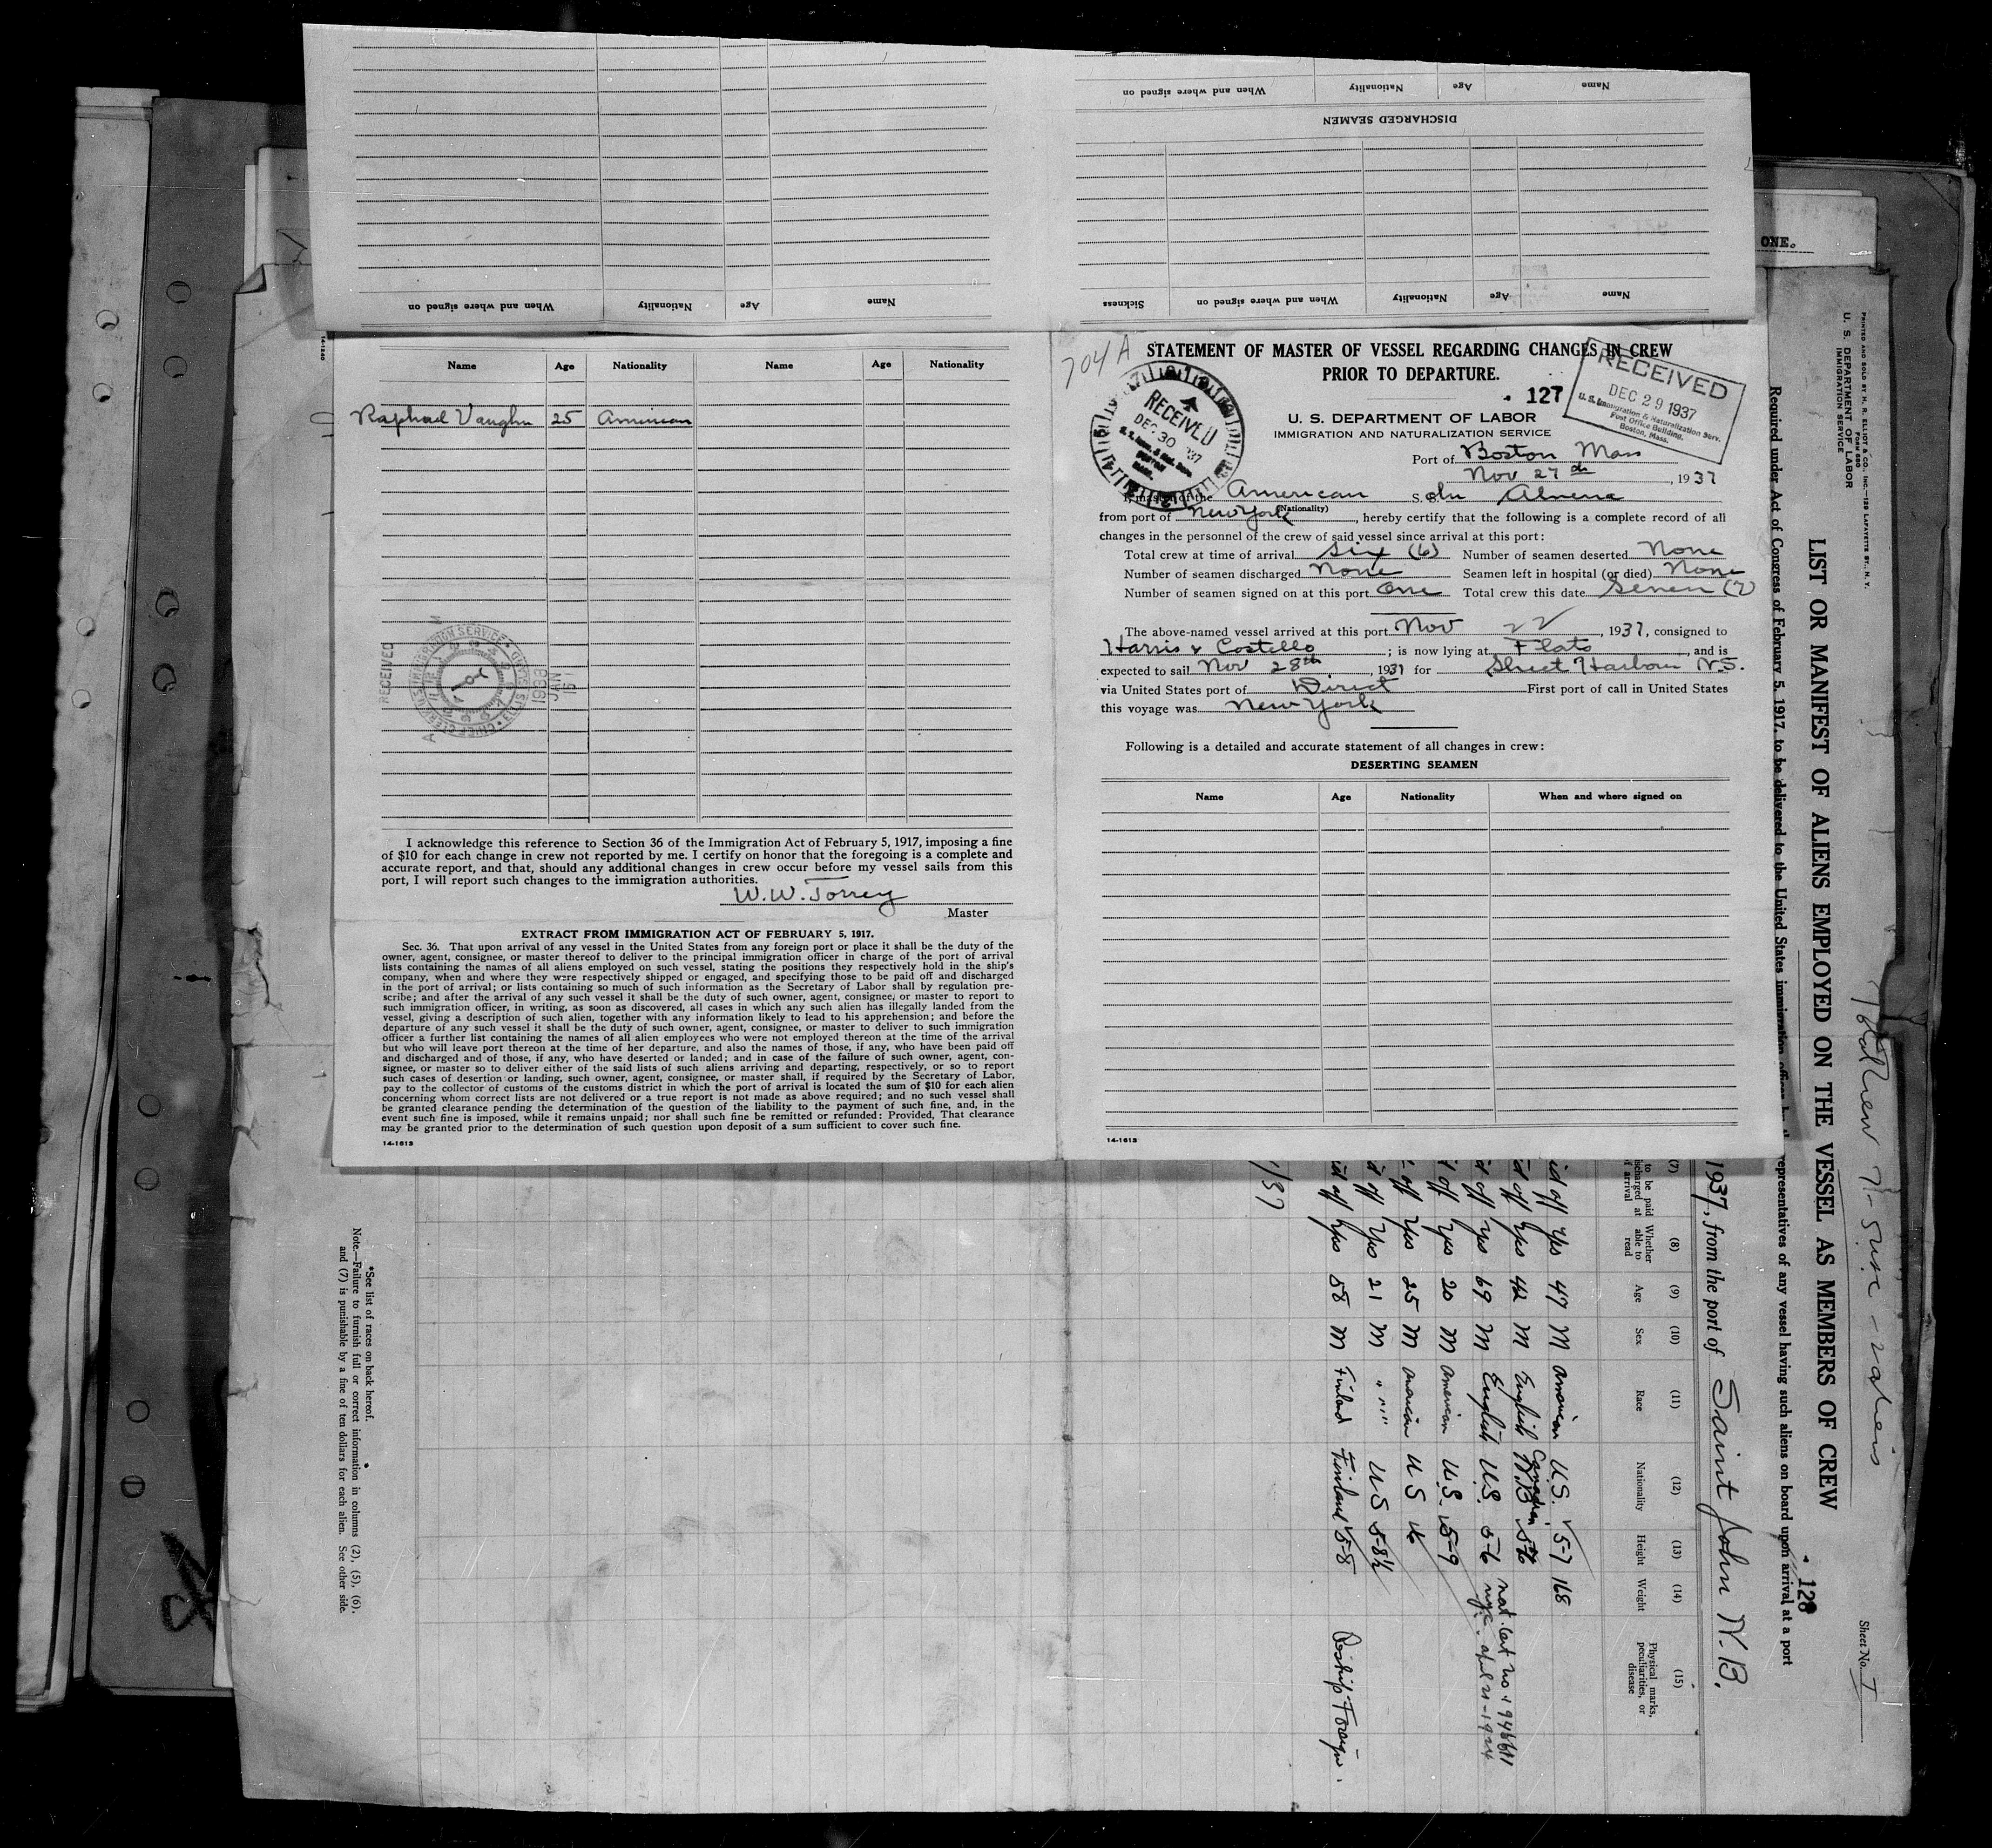 When and where signed on Nationality Age Name
DISCHARGED SEAMEN
Sickness When and where signed on Nationality Age Name
When and where signed on Nationality Age Name
ONE.
14-1240
Name Age Nationality Name Age Nationality
Raphael Vaughn 25 American
RECEIVED
JAN
1938
I acknowledge this reference to Section 36 of the Immigration Act of February 5, 1917, imposing a fine
of $10 for each change in crew not reported by me. I certify on honor that the foregoing is a complete and
accurate report, and that, should any additional changes in crew occur before my vessel sails from this
port, I will report such changes to the immigration authorities.
W. W. Torrey
Master
EXTRACT FROM IMMIGRATION ACT OF FEBRUARY 5, 1917.
Sec. 36. That upon arrival of any vessel in the United States from any foreign port or place it shall be the duty of the
owner, agent, consignee, or master thereof to deliver to the principal immigration officer in charge of the port of arrival
lists containing the names of all aliens employed on such vessel, stating the positions they respectively hold in the ship's
company, when and where they were respectively shipped or engaged, and specifying those to be paid off and discharged
in the port of arrival; or lists containing so much of such information as the Secretary of Labor shall by regulation pre-
scribe; and after the arrival of any such vessel it shall be the duty of such owner, agent, consignee, or master to report to
such immigration officer, in writing, as soon as discovered, all cases in which any such alien has illegally landed from the
vessel, giving a description of such alien, together with any information likely to lead to his apprehension; and before the
departure of any such vessel it shall be the duty of such owner, agent, consignee, or master to deliver to such immigration
officer a further list containing the names of all alien employees who were not employed thereon at the time of the arrival
but who will leave port thereon at the time of her departure, and also the names of those, if any, who have been paid off
and discharged and of those, if any, who have deserted or landed; and in case of the failure of such owner, agent, con-
signee, or master so to deliver either of the said lists of such aliens arriving and departing, respectively, or so to report
such cases of desertion or landing, such owner, agent, consignee, or master shall, if required by the Secretary of Labor,
pay to the collector of customs of the customs district in which the port of arrival is located the sum of $10 for each alien
concerning whom correct lists are not delivered or a true report is not made as above required; and no such vessel shall
be granted clearance pending the determination of the question of the liability to the payment of such fine, and, in the
event such fine is imposed, while it remains unpaid; nor shall such fine be remitted or refunded: Provided, That clearance
may be granted prior to the determination of such question upon deposit of a sum sufficient to cover such fine.
14-1613
704A
STATEMENT OF MASTER OF VESSEL REGARDING CHANGES IN CREW
PRIOR TO DEPARTURE.
127
RECEIVED
DEC 29 1937
U. S. Immigration & Naturalization Serv.
Post Office Building,
Boston, Mass.
RECEIVED
DEC 30 '37
U. S. DEPARTMENT OF LABOR
IMMIGRATION AND NATURALIZATION SERVICE
Port of Boston Mass
Nov 27th, 1937
I, master of the American S. Alnena
(Nationality)
from port of New York, hereby certify that the following is a complete record of all
changes in the personnel of the crew of said vessel since arrival at this port:
Total crew at time of arrival Six (6) Number of seamen deserted None
Number of seamen discharged None Seamen left in hospital (or died) None
Number of seamen signed on at this port One Total crew this date Seven (7)
The above-named vessel arrived at this port Nov 22, 1937, consigned to
Harris & Costello; is now lying at Flats, and is
expected to sail Nov 28th, 1937 for Sheet Harbour N.S.
via United States port of Direct First port of call in United States
this voyage was New York
Following is a detailed and accurate statement of all changes in crew:
DESERTING SEAMEN
Name Age Nationality When and where signed on
14-1613
PRINTED AND SOLD BY H. R. ELLIOT & CO., INC.—129 LAFAYETTE ST., N. Y.
FORM 680
U. S. DEPARTMENT OF LABOR
IMMIGRATION SERVICE
Sheet No. 1
128
LIST OR MANIFEST OF ALIENS EMPLOYED ON THE VESSEL AS MEMBERS OF CREW
Required under Act of Congress of February 5, 1917, to be delivered to the United States immigration representatives of any vessel having such aliens on board upon arrival at a port
1937, from the port of Saint John N.B.
(7) (8) (9) (10) (11) (12) (13) (14) (15)
to be paid discharged at of arrival Whether able to read Age Sex Race Nationality Height Weight Physical marks, peculiarities, or disease
off Yes 47 M American U.S. 5-7 168
off Yes 42 M English Canadian N.B. 5-6
off Yes 69 M English U.S. 5-6
off Yes 20 M American U.S. 5-9
off Yes 25 M American U S
off Yes 21 M " " U S 5-8½
off Yes 58 M Finland Finland 5-8 Reship Foreign.
/37
*See list of races on back hereof.
Note.—Failure to furnish full or correct information in columns (2), (5), (6),
and (7) is punishable by a fine of ten dollars for each alien. See other side.